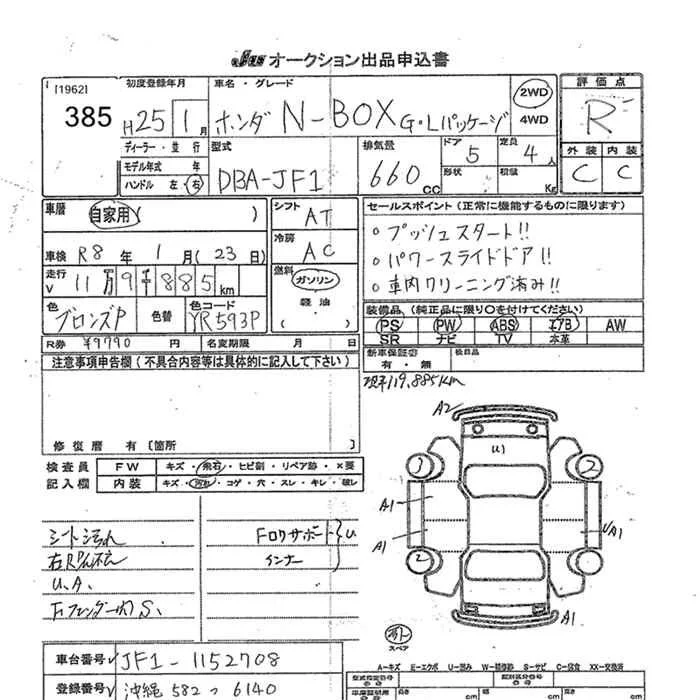 オークション出品申込書
[1962]
385
初度登録年月
H25 1月
車名・グレード
ホンダ N-BOX G・Lパッケージ
2WD
4WD
評価点
R
ディーラー・並行
モデル年式 年
ハンドル 左・右
型式
DBA-JF1
排気量
660cc
ドア
5
定員
4人
形状
積載
Kg
外装 内装
C C
車歴
自家用( )
シフト
AT
セールスポイント(正常に機能するものに限ります)
。プッシュスタート!!
。パワースライドドア!!
。車内クリーニング済み!!
車検 R8年 1月(23日)
冷房
AC
走行
11万9千885km
燃料
ガソリン
軽油
( )
色
ブロンズP
色替
色コード
YR593P
装備品(純正品に限り○を付けてください)
PS PW ABS エアB AW
SR ナビ TV 本革
R券 ¥9790円 名変期限 月 日
新車保証書
有・無
注意事項申告欄(不具合内容等は具体的に記入して下さい)
119,885km
修復歴 有〔箇所 〕
検査員
記入欄
FW キズ・飛石・ヒビ割・リペア跡・×要
内装 キズ・汚れ・コゲ・穴・スレ・キレ・破レ
A2
U1
A1
A1
A1
A1
1
2
2
シート汚れ
U.A.
S.
インナー
U
スペア
車台番号 JF1-1152708
登録番号 沖縄 582 つ 6140
A－キズ E－エクボ U－凹み W－補修跡 S－サビ C－腐食 XX－交換済
長さ
cm
cm
cm